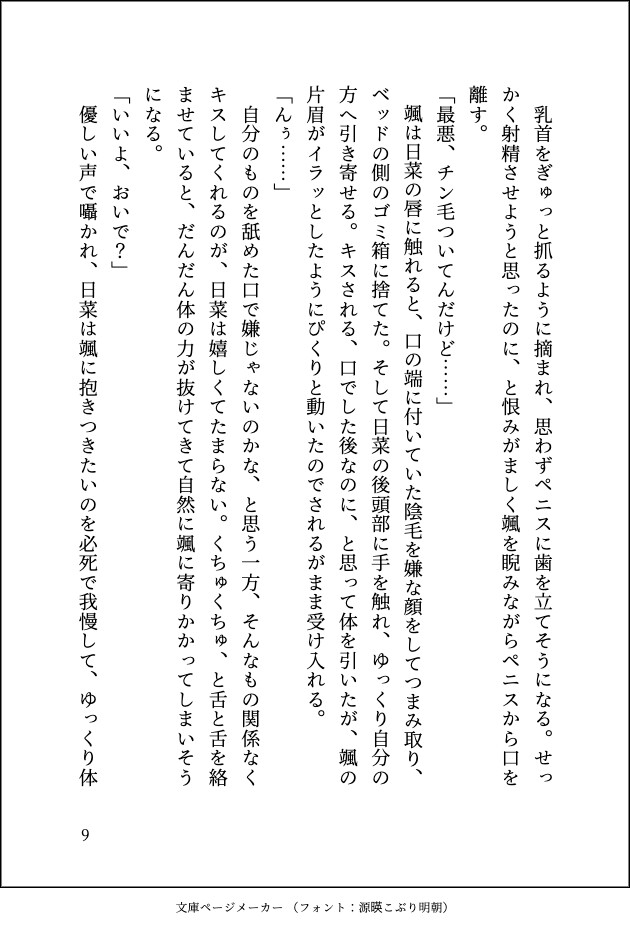 乳首をぎゅっと抓るように摘まれ、思わずペニスに歯を立てそうになる。せっ
かく射精させようと思ったのに、と恨みがましく颯を睨みながらペニスから口を
離す。
「最悪、チン毛ついてんだけど……」
颯は日菜の唇に触れると、口の端に付いていた陰毛を嫌な顔をしてつまみ取り、
ベッドの側のゴミ箱に捨てた。そして日菜の後頭部に手を触れ、ゆっくり自分の
方へ引き寄せる。キスされる、口でした後なのに、と思って体を引いたが、颯の
片眉がイラッとしたようにぴくりと動いたのでされるがまま受け入れる。
「んぅ……」
自分のものを舐めた口で嫌じゃないのかな、と思う一方、そんなもの関係なく
キスしてくれるのが、日菜は嬉しくてたまらない。くちゅくちゅ、と舌と舌を絡
ませていると、だんだん体の力が抜けてきて自然に颯に寄りかかってしまいそう
になる。
「いいよ、おいで？」
優しい声で囁かれ、日菜は颯に抱きつきたいのを必死で我慢して、ゆっくり体
9
文庫ページメーカー（フォント：源暎こぶり明朝）